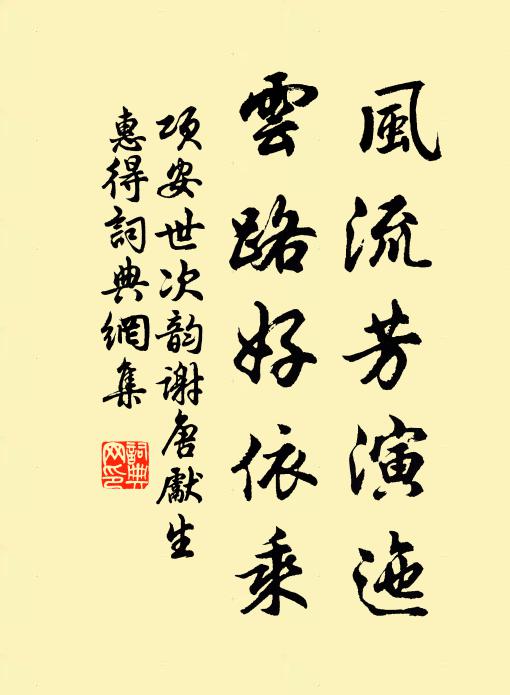 風流芳演迤
雲路好依乘
項安世次韵謝唐獻生
惠得詞典網集
詞典网印